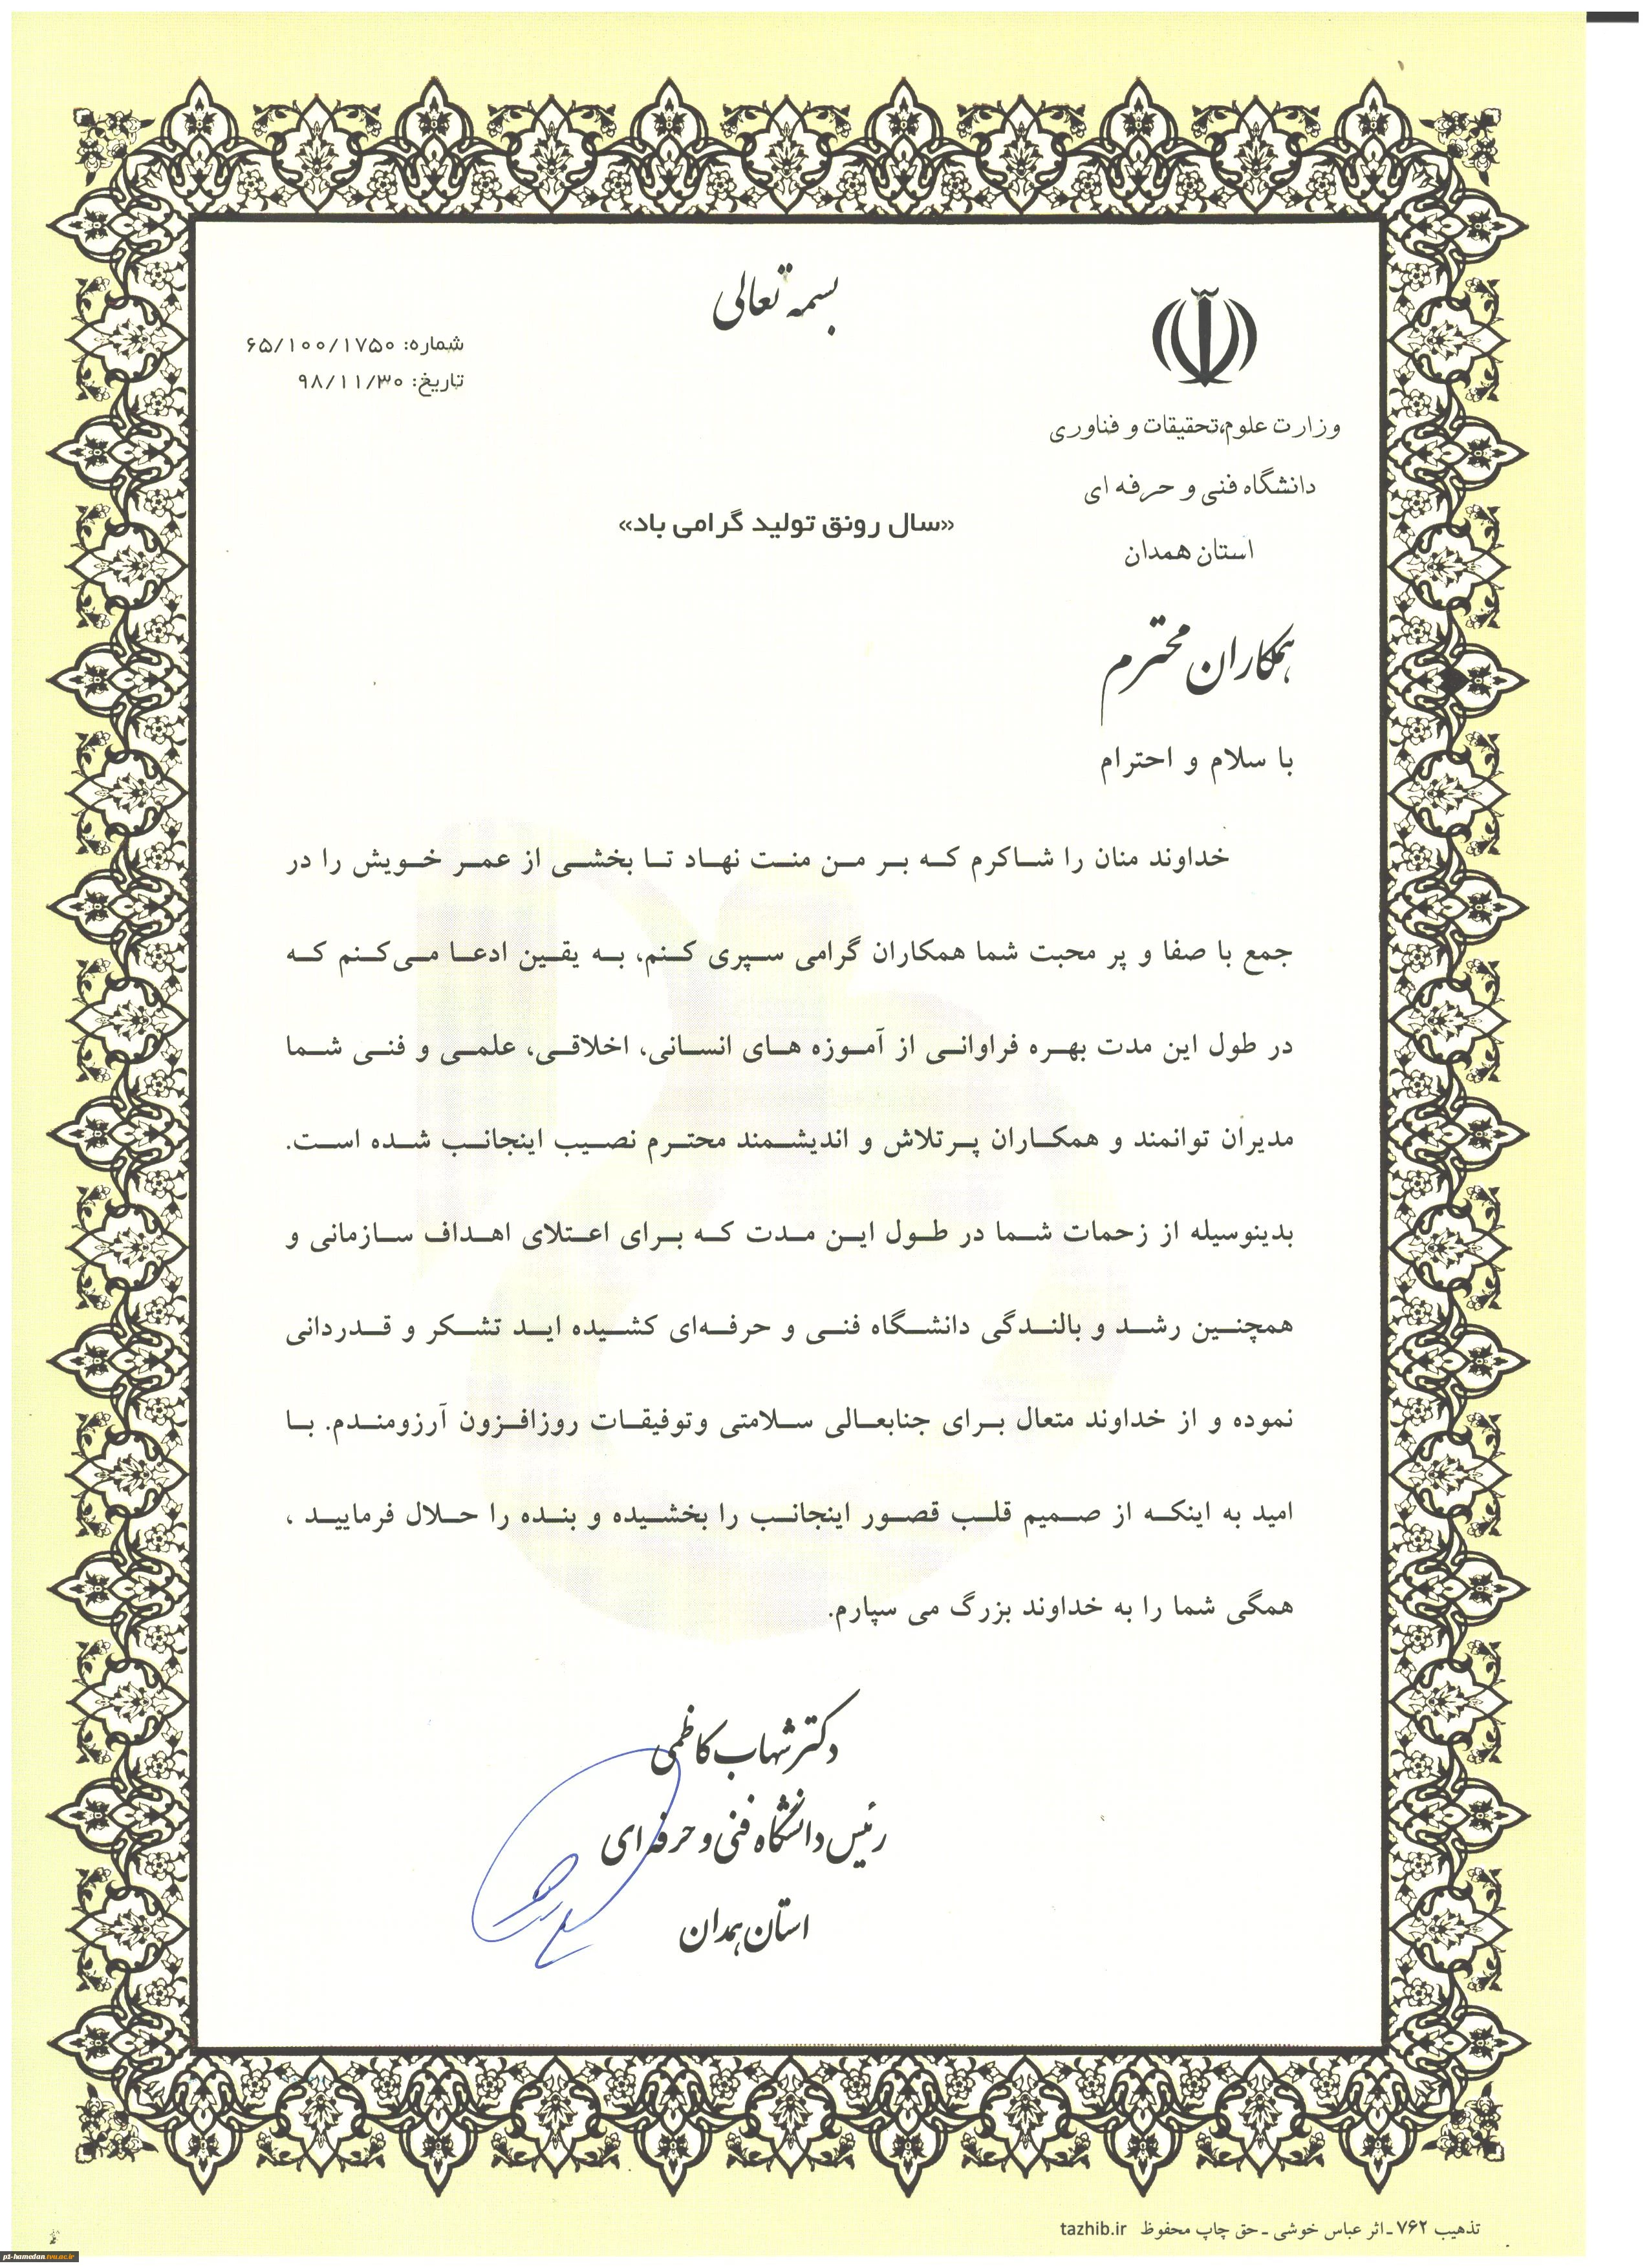 بسمه تعالی
شماره: ۶۵/۱۰۰/۱۷۵۰
تاریخ: ۹۸/۱۱/۳۰
وزارت علوم،تحقیقات و فناوری
دانشگاه فنی و حرفه ای
استان همدان
«سال رونق تولید گرامی باد»
همکاران محترم
با سلام و احترام
خداوند منان را شاکرم که بر من منت نهاد تا بخشی از عمر خویش را در
جمع با صفا و پر محبت شما همکاران گرامی سپری کنم، به یقین ادعا می‌کنم که
در طول این مدت بهره فراوانی از آموزه های انسانی، اخلاقی، علمی و فنی شما
مدیران توانمند و همکاران پرتلاش و اندیشمند محترم نصیب اینجانب شده است.
بدینوسیله از زحمات شما در طول این مدت که برای اعتلای اهداف سازمانی و
همچنین رشد و بالندگی دانشگاه فنی و حرفه‌ای کشیده اید تشکر و قدردانی
نموده و از خداوند متعال برای جنابعالی سلامتی وتوفیقات روزافزون آرزومندم. با
امید به اینکه از صمیم قلب قصور اینجانب را بخشیده و بنده را حلال فرمایید ،
همگی شما را به خداوند بزرگ می سپارم.
دکتر شهاب کاظمی
رئیس دانشگاه فنی و حرفه ای
استان همدان
تذهیب ۷۶۲ ـ اثر عباس خوشی ـ حق چاپ محفوظ tazhib.ir
p1-hamedan.tvu.ac.ir